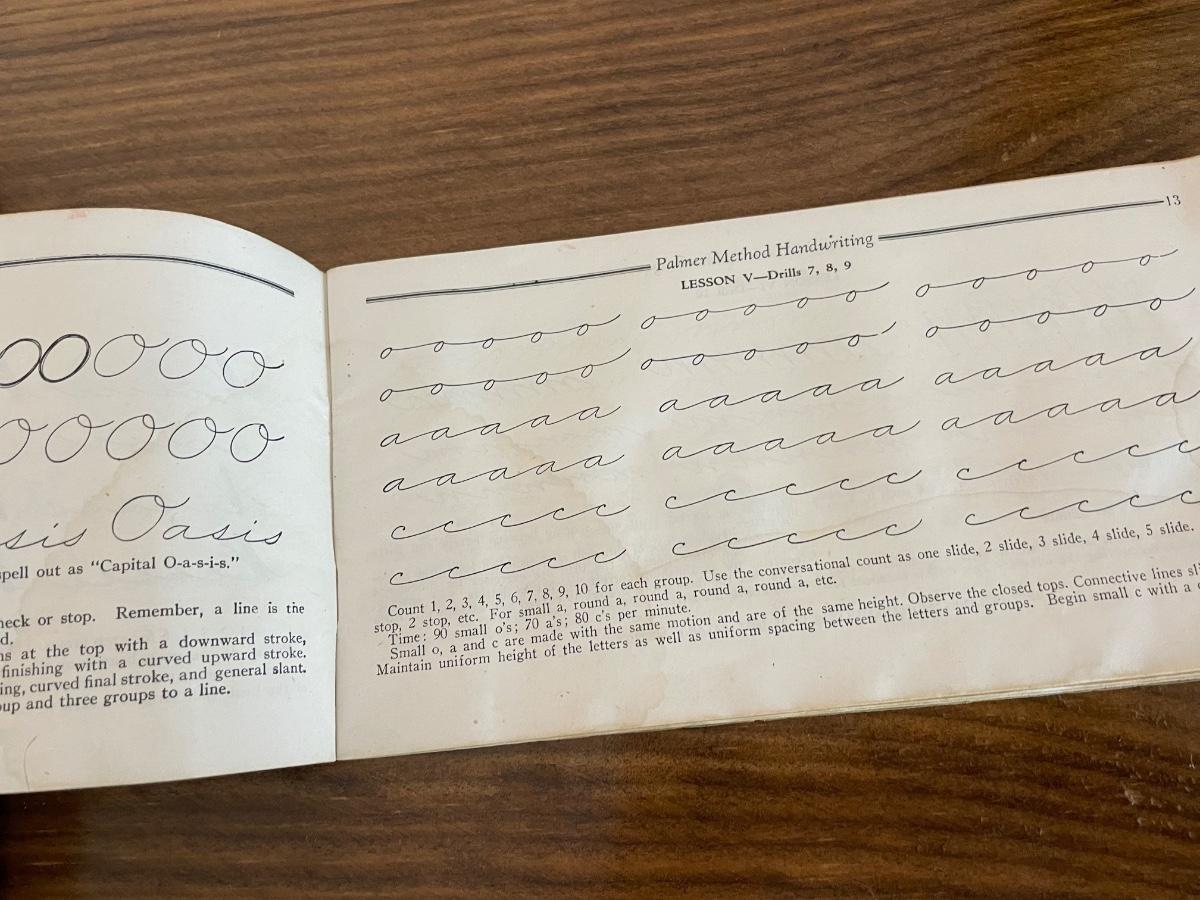 OOOOOO
OOOOO
sis Oasis
spell out as "Capital O-a-s-i-s."
heck or stop. Remember, a line is the
d.
ns at the top with a downward stroke,
finishing with a curved upward stroke.
ing, curved final stroke, and general slant.
oup and three groups to a line.
13
Palmer Method Handwriting
LESSON V—Drills 7, 8, 9
o o o o o o o o o o o o o o o
o o o o o o o o o o o o o o o
a a a a a a a a a a a a a a a
a a a a a a a a a a a a a a a
c c c c c c c c c c c c c c c
c c c c c c c c c c c c c c c
Count 1, 2, 3, 4, 5, 6, 7, 8, 9, 10 for each group. Use the conversational count as one slide, 2 slide, 3 slide, 4 slide, 5 slide.
stop, 2 stop, etc. For small a, round a, round a, round a, round a, etc.
Time: 90 small o's; 70 a's; 80 c's per minute.
Small o, a and c are made with the same motion and are of the same height. Observe the closed tops. Connective lines sli
Maintain uniform height of the letters as well as uniform spacing between the letters and groups. Begin small c with a